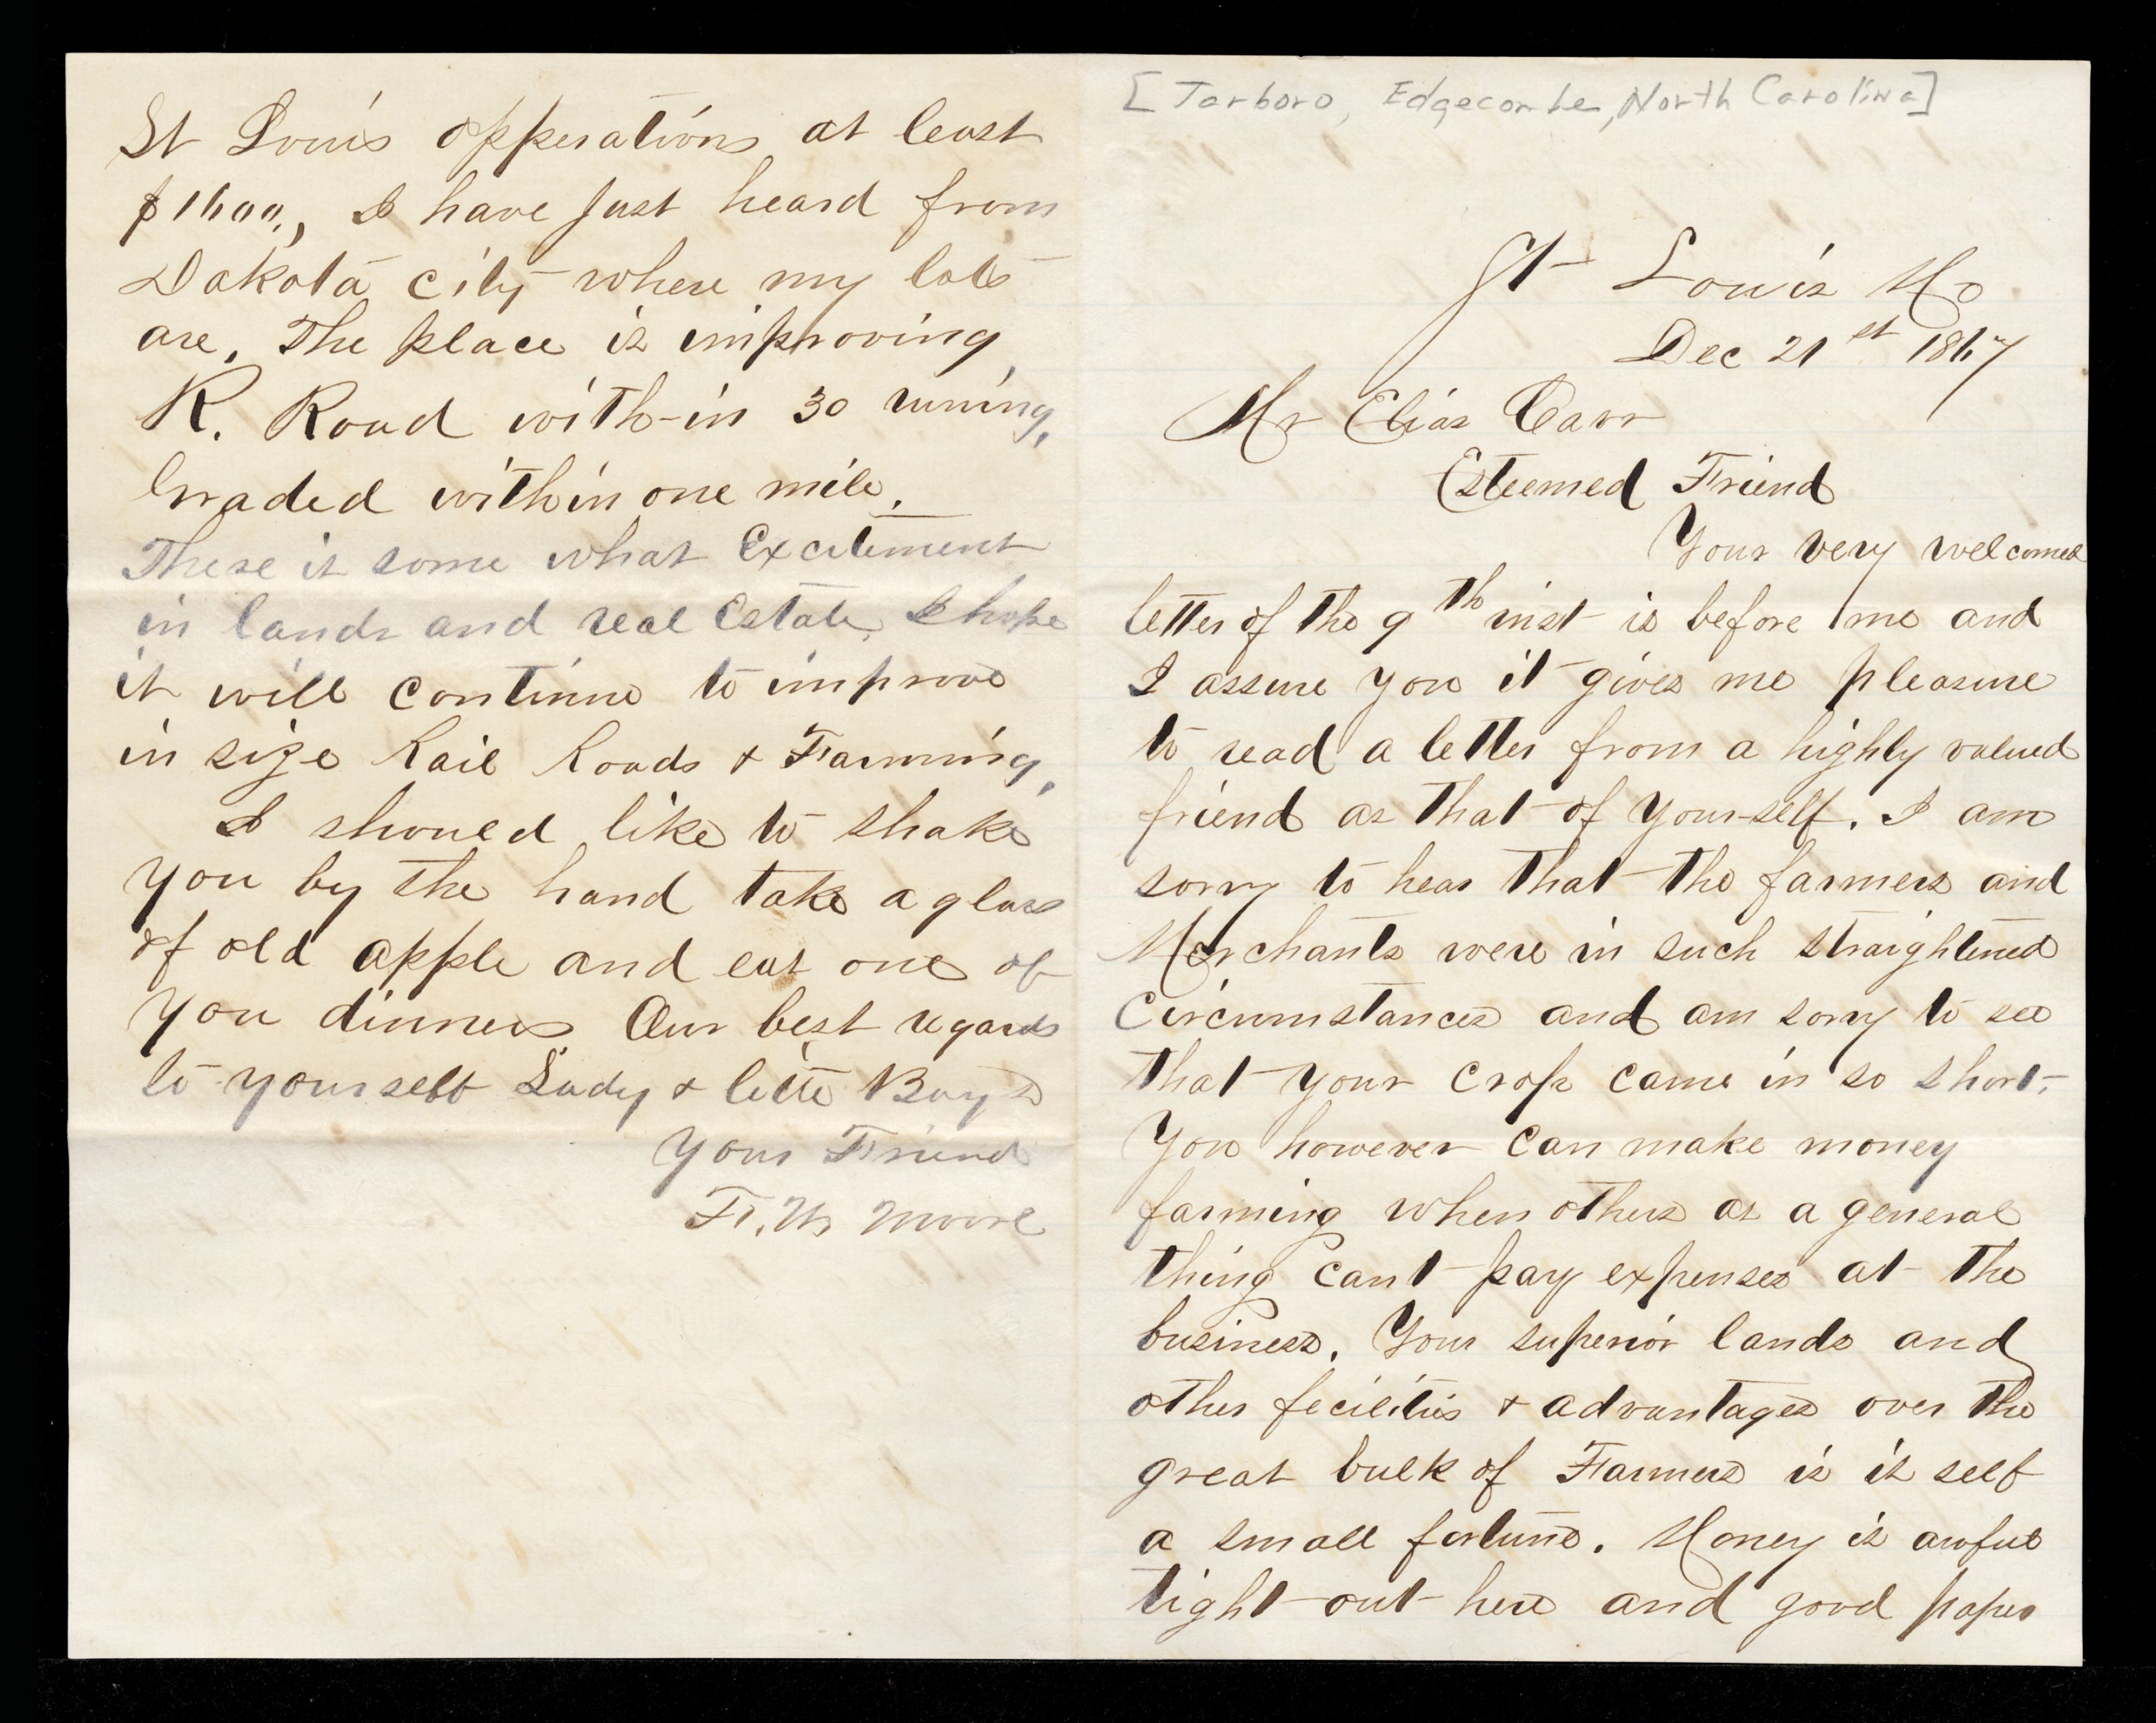 St Louis opperations at least
$1600., I have just heard from
Dakota City where my lots
are. The place is improving,
R. Road with-in 30 runing,
Graded within one mile.
There is some what Excitement
in lands and real Estate, I hope
it will continue to improve
in size Rail Roads & Farming,
I should like to shake
you by the hand take a glass
of old apple and eat one of
you dinners Our best regards
to yourself Lady & little Boys
Your Friend
Fr. W Moore
[Tarboro, Edgecombe, North Carolina]
St Louis Mo
Dec 21st 1867
Mr Elias Carr
Esteemed Friend
Your very welcomed
letter of the 9th inst is before me and
I assure you it gives me pleasure
to read a letter from a highly valued
friend as that of yourself. I am
sorry to hear that the farmers and
Merchants were in such straightened
Circumstances and am sorry to see
that your crop came in so short.
You however can make money
farming when others as a general
thing cant pay expenses at the
business. Your superior lands and
other fecilities & advantages over the
great bulk of Farmers is it self
a small fortune. Money is awful
tight out here and good paper